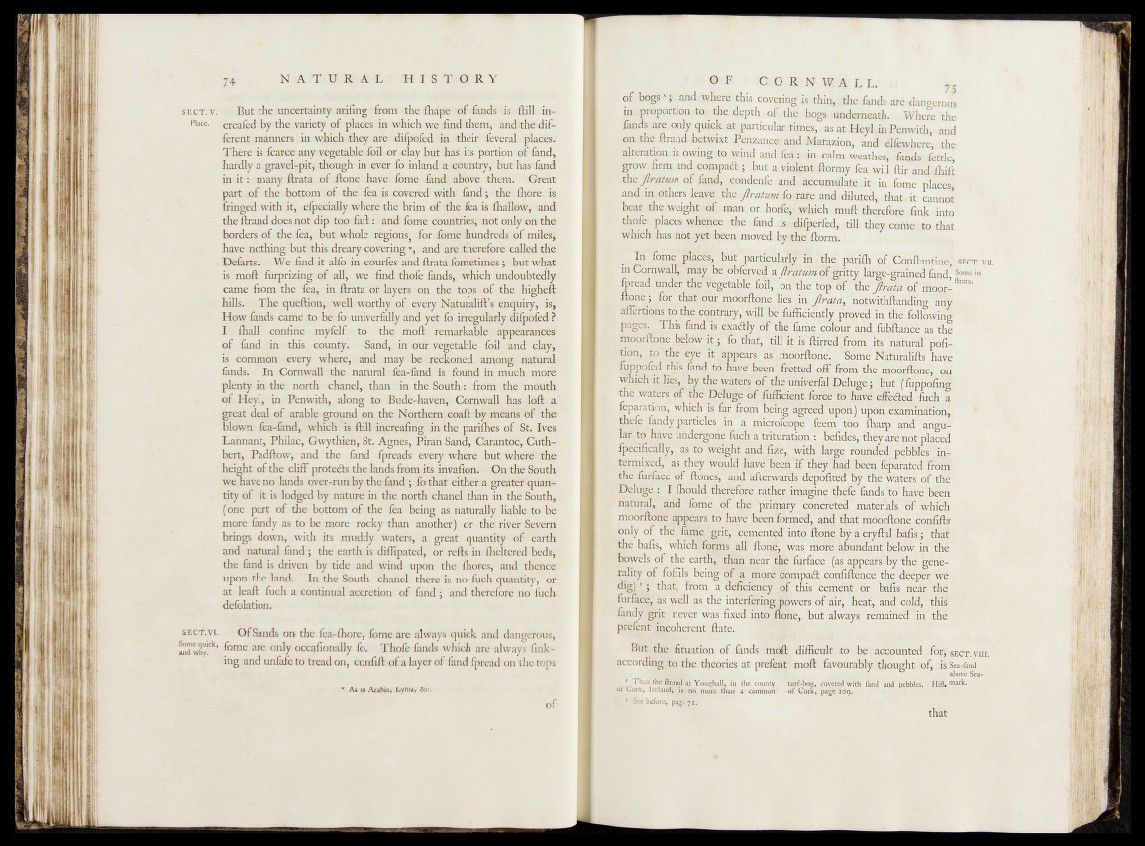 74 NATURAL HISTORY
SECT. V. But the uncertainty ariſing from the ſhape of ſands is ſtill in-
Place. creaſed by the variety of places in which we find them, and the dif-
ferent manners in which they are diſpoſed in their ſeveral places.
There is ſcarce any vegetable ſoil or clay but has its portion of ſand,
hardly a gravel-pit, though in ever ſo inland a country, but has ſand
in it : many ſtrata of ſtone have ſome ſand above them. Great
part of the bottom of the ſea is covered with ſand ; the ſhore is
fringed with it, eſpecially where the brim of the ſea is ſhallow, and
the ſtrand does not dip too faſt : and ſome countries, not only on the
borders of the ſea, but whole regions, for ſome hundreds of miles,
have nothing but this dreary covering ʷ, and are therefore called the
Deſarts. We find it alſo in courſes and ſtrata ſometimes ; but what
is moſt ſurprizing of all, we find thoſe ſands, which undoubtedly
came from the ſea, in ſtrata or layers on the tops of the higheſt
hills. The queſtion, well worthy of every Naturaliſt's enquiry, is,
How ſands came to be ſo univerſally and yet ſo irregularly diſpoſed ?
I ſhall confine myſelf to the moſt remarkable appearances
of ſand in this county. Sand, in our vegetable ſoil and clay,
is common every where, and may be reckoned among natural
ſands. In Cornwall the natural ſea-ſand is found in much more
plenty in the north chanel, than in the South : from the mouth
of Heyl, in Penwith, along to Bude-haven, Cornwall has loſt a
great deal of arable ground on the Northern coaſt by means of the
blown ſea-ſand, which is ſtill increaſing in the pariſhes of St. Ives
Lannant, Philac, Gwythien, St. Agnes, Piran Sand, Carantoc, Cuth-
bert, Padſtow, and the ſand ſpreads every where but where the
height of the cliff protects the lands from its invaſion. On the South
we have no lands over-run by the ſand ; ſo that either a greater quan-
tity of it is lodged by nature in the north chanel than in the South,
(one part of the bottom of the ſea being as naturally liable to be
more ſandy as to be more rocky than another) or the river Severn
brings down, with its muddy waters, a great quantity of earth
and natural ſand ; the earth is diſſipated, or reſts in ſheltered beds,
the ſand is driven by tide and wind upon the ſhores, and thence
upon the land. In the South chanel there is no ſuch quantity, or
at leaſt ſuch a continual accretion of ſand ; and therefore no ſuch
deſolation.
SECT. VI. Of Sands on the ſea-ſhore, ſome are always quick and dangerous,
Some quick, and why. ſome are only occaſionally ſo. Thoſe ſands which are always ſink-
ing and unſafe to tread on, conſiſt of a layer of ſand ſpread on the tops
ʷ As in Arabia, Lybia, &c.
of
OF CORNWALL. 75
of bogs ˣ ; and where this covering is thin, the ſands are dangerous
in proportion to the depth of the bogs underneath. Where the
ſands are only quick at particular times, as at Heyl in Penwith, and
on the ſtrand betwixt Penzance and Marazion, and elſewhere, the
alteration is owing to wind and ſea : in calm weather, ſands ſettle,
grow firm and compact ; but a violent ſtormy ſea will ſtir and ſhift
the ſtratum of ſand, condenſe and accumulate it in ſome places,
and in others leave the ſtratum ſo rare and diluted, that it cannot
bear the weight of man or horſe, which muſt therefore ſink into
thoſe places whence the ſand is diſperſed, till they come to that
which has not yet been moved by the ſtorm.
In ſome places, but particularly in the pariſh of Conſtantine, SECT VII.
in Cornwall, may be obſerved a ſtratum of gritty large-grained ſand, Some in ſtrata.
ſpread under the vegetable ſoil, on the top of the ſtrata of moor-
ſtone ; for that our moorſtone lies in ſtrata, notwithſtanding any
aſſertions to the contrary, will be ſufficiently proved in the following
pages. This ſand is exactly of the ſame colour and ſubſtance as the
moorſtone below it ; ſo that, till it is ſtirred from its natural poſi-
tion, to the eye it appears as moorſtone. Some Naturaliſts have
ſuppoſed this ſand to have been fretted off from the moorſtone, on
which it lies, by the waters of the univerſal Deluge ; but (ſuppoſing
the waters of the Deluge of ſufficient force to have effected ſuch a
ſeparation, which is far from being agreed upon) upon examination,
theſe ſandy particles in a microſcope ſeem too ſharp and angu-
lar to have undergone ſuch a trituration : beſides, they are not placed
ſpecifically, as to weight and ſize, with large rounded pebbles in-
termixed, as they would have been if they had been ſeparated from
the ſurface of ſtones, and afterwards depoſited by the waters of the
Deluge : I ſhould therefore rather imagine theſe ſands to have been
natural, and ſome of the primary concreted materials of which
moorſtone appears to have been formed, and that moorſtone conſiſts
only of the ſame grit, cemented into ſtone by a cryſtal baſis ; that
the baſis, which forms all ſtone, was more abundant below in the
bowels of the earth, than near the ſurface (as appears by the gene-
rality of foſſils being of a more compact conſiſtence the deeper we
dig) ʸ ; that, from a deficiency of this cement or baſis near the
ſurface, as well as the interfering powers of air, heat, and cold, this
ſandy grit never was fixed into ſtone, but always remained in the
preſent incoherent ſtate.
But the ſituation of ſands moſt difficult to be accounted for, SECT. VIII.
according to the theories at preſent moſt favourably thought of, is Sea-ſand above Sea-mark.
ˣ Thus the ſtrand at Youghall, in the county turf-bog, covered with ſand and pebbles. Hiſt.
of Cork, Ireland, is no more than a common of Cork, page 109.
ʸ See before, pag. 71.
that